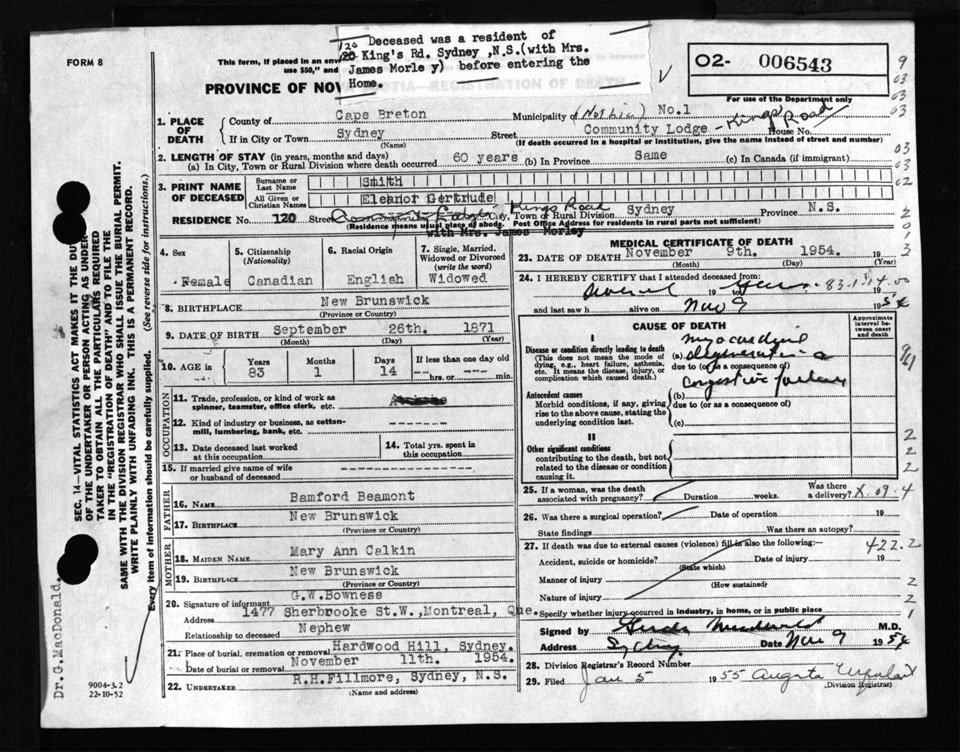 Deceased was a resident of
120 King's Rd. Sydney ,N.S.(with Mrs.
James Morle y) before entering the
Home.
FORM 8
This form, if placed in an enve
use $50," and
PROVINCE OF NOV OTIA—REGISTRATION OF DEATH
O2- 006543
For use of the Department only
1. PLACE OF DEATH
County of Cape Breton Municipality of No.1
If in City or Town Sydney Street Community Lodge - Kings Road House No.
(Name) (If death occurred in a hospital or institution, give the name instead of street and number)
2. LENGTH OF STAY (in years, months and days)
(a) In City, Town or Rural Division where death occurred 60 years (b) In Province Same (c) In Canada (if immigrant)
3. PRINT NAME OF DECEASED
Surname or Last Name Smith
All Given or Christian Names Eleanor Gertrude
RESIDENCE No. 120 Street Kings Road City, Town or Rural Division Sydney Province N.S.
(Residence means usual place of abode. Post Office Address for residents in rural parts not sufficient)
with Mrs. James Morley
4. Sex
Female
5. Citizenship
(Nationality)
Canadian
6. Racial Origin
English
7. Single, Married,
Widowed or Divorced
(write the word)
Widowed
8. BIRTHPLACE New Brunswick
(Province or Country)
9. DATE OF BIRTH September 26th. 1871
(Month) (Day) (Year)
10. AGE in
Years Months Days If less than one day old
83 1 14 hrs. or min.
OCCUPATION
11. Trade, profession, or kind of work as
spinner, teamster, office clerk, etc.
12. Kind of industry or business, as cotton-
mill, lumbering, bank, etc.
13. Date deceased last worked
at this occupation
14. Total yrs. spent in
this occupation
15. If married give name of wife
or husband of deceased
FATHER
16. NAME Bamford Beamont
17. BIRTHPLACE New Brunswick
(Province or Country)
MOTHER
18. MAIDEN NAME Mary Ann Calkin
19. BIRTHPLACE New Brunswick
(Province or Country)
20. Signature of informant G.W.Bowness
Address 1477 Sherbrooke St.W.,Montreal, Que.
Relationship to deceased Nephew
21. Place of burial, cremation or removal Hardwood Hill, Sydney.
Date of burial or removal November 11th. 1954.
22. UNDERTAKER R.H.Fillmore, Sydney, N.S.
(Name and address)
MEDICAL CERTIFICATE OF DEATH
23. DATE OF DEATH November 9th. 1954. 19
(Month) (Day) (Year)
24. I HEREBY CERTIFY that I attended deceased from:
Several 19 to Years 19 83-1-14-00
and last saw h alive on Nov 9 1954
CAUSE OF DEATH
Approximate interval between onset and death
I
Disease or condition directly leading to death
(This does not mean the mode of
dying, e.g., heart failure, asthenia,
etc. It means the disease, injury, or
complication which caused death.)
(a) Myocardial degeneration
due to (or as a consequence of)
Antecedent causes
Morbid conditions, if any, giving
rise to the above cause, stating the
underlying condition last.
(b) Congestive failure
due to (or as a consequence of)
(c)
II
Other significant conditions
contributing to the death, but not
related to the disease or condition
causing it.
25. If a woman, was the death
associated with pregnancy? Duration weeks. Was there a delivery? X-09-4
26. Was there a surgical operation? Date of operation 19
State findings Was there an autopsy?
27. If death was due to external causes (violence) fill in also the following:
Accident, suicide or homicide? Date of injury 19
(State which)
422.2
Manner of injury
(How sustained)
Nature of injury
Specify whether injury occurred in industry, in home, or in public place
Signed by M.D.
Address Sydney Date Nov 9 1954
28. Division Registrar's Record Number
29. Filed Jan 5 1955 Augusta
(Division Registrar)
9
03
03
03
03
03
02
2
9
3
2
2
2
2
2
1
SEC. 14—VITAL STATISTICS ACT MAKES IT THE DUTY
OF THE UNDERTAKER OR PERSON ACTING AS UNDER-
TAKER TO OBTAIN ALL THE PARTICULARS REQUIRED
IN THE "REGISTRATION OF DEATH" AND TO FILE THE
SAME WITH THE DIVISION REGISTRAR WHO SHALL ISSUE THE BURIAL PERMIT.
WRITE PLAINLY WITH UNFADING INK. THIS IS A PERMANENT RECORD.
Every item of information should be carefully supplied. (See reverse side for instructions.)
Dr.G.MacDonald.
9004-3.2
22-10-52